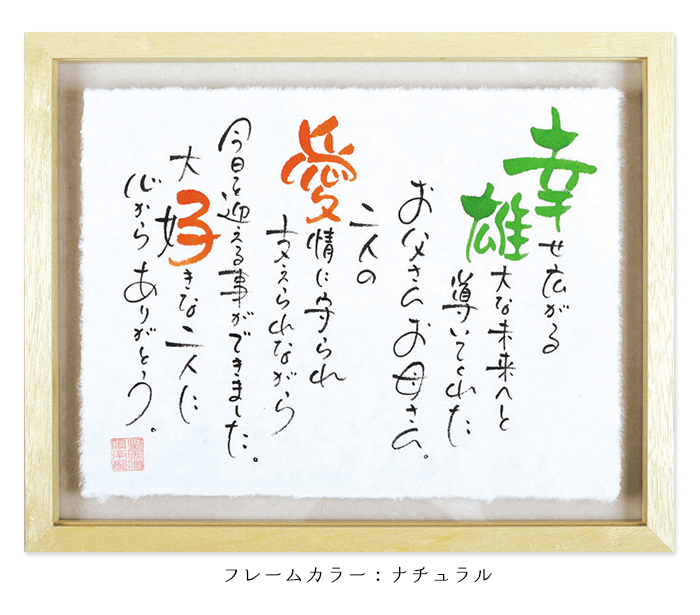 幸せ広がる
雄大な未来へと
導いてくれた
お父さんお母さん。
二人の
愛情に守られ
支えられながら
今日を迎える事ができました。
大好きな二人に
心からありがとう。
フレームカラー：ナチュラル